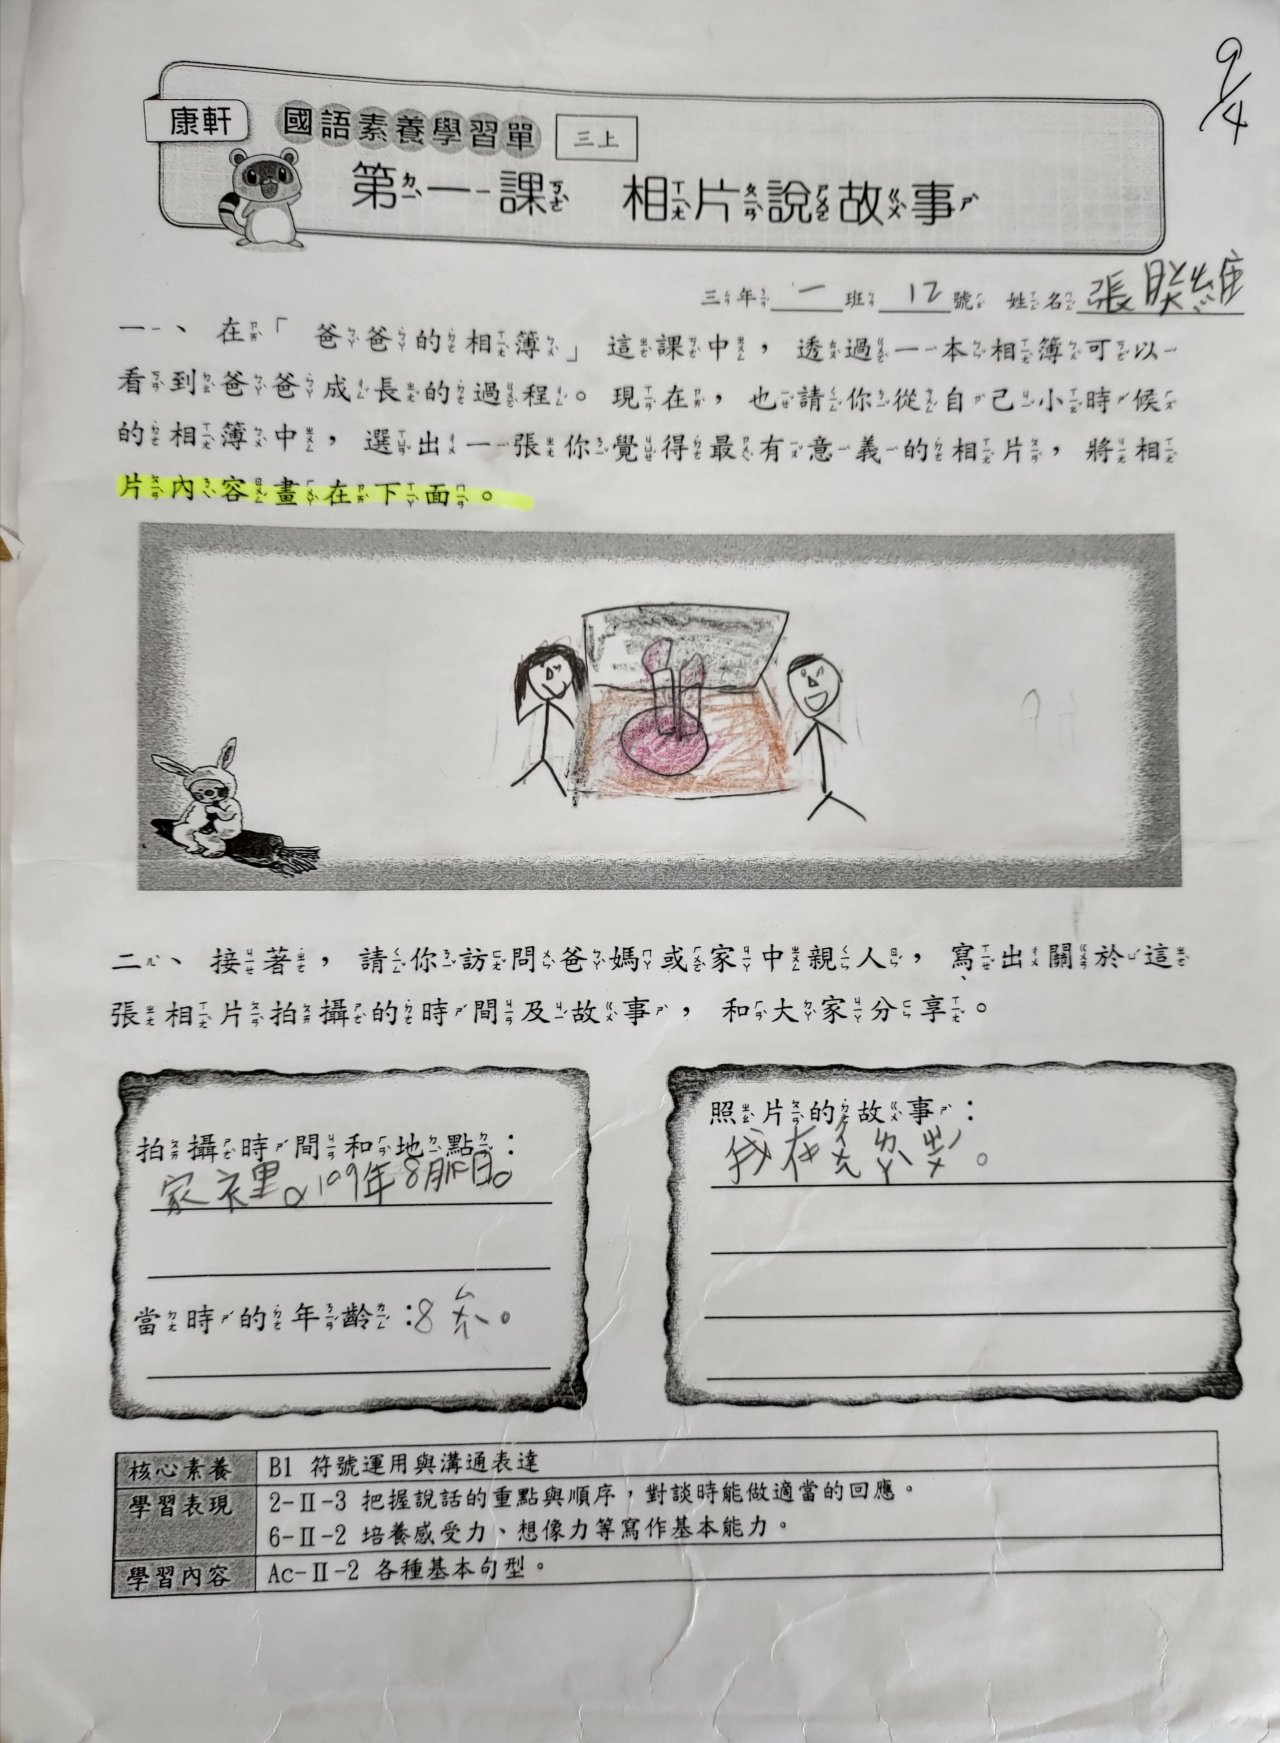 9/4
康軒 國語素養學習單 三上
第一課 相片說故事
三年一班12號 姓名張
一、在「爸爸的相簿」這課中,透過一本相簿可以
看到爸爸成長的過程。現在,也請你從自己小時候
的相簿中,選出一張你覺得最有意義的相片,將相
片內容畫在下面。
二、接著,請你訪問爸媽或家中親人,寫出關於這
張相片拍攝的時間及故事,和大家分享。
拍攝時間和地點:
家裡。109年8月 日。
當時的年齡:8ㄙㄨㄟˋ。
照片的故事:
我在ㄑㄧㄥˋ
核心素養 B1 符號運用與溝通表達
學習表現 2-Ⅱ-3 把握說話的重點與順序,對談時能做適當的回應。
6-Ⅱ-2 培養感受力、想像力等寫作基本能力。
學習內容 Ac-Ⅱ-2 各種基本句型。